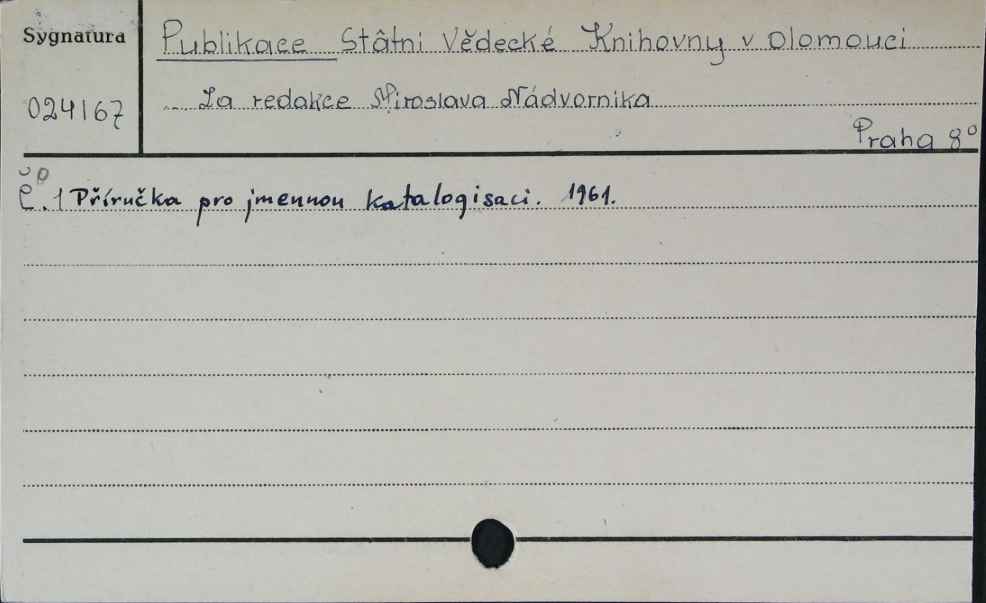 Sygnatura
Publikace Státni Vědecké Knihovny v Olomouci
024167
Za redakce Miroslava Nádvornika
Praha 8°
Č. 1 Přiručka pro jmennou katalogisaci. 1961.